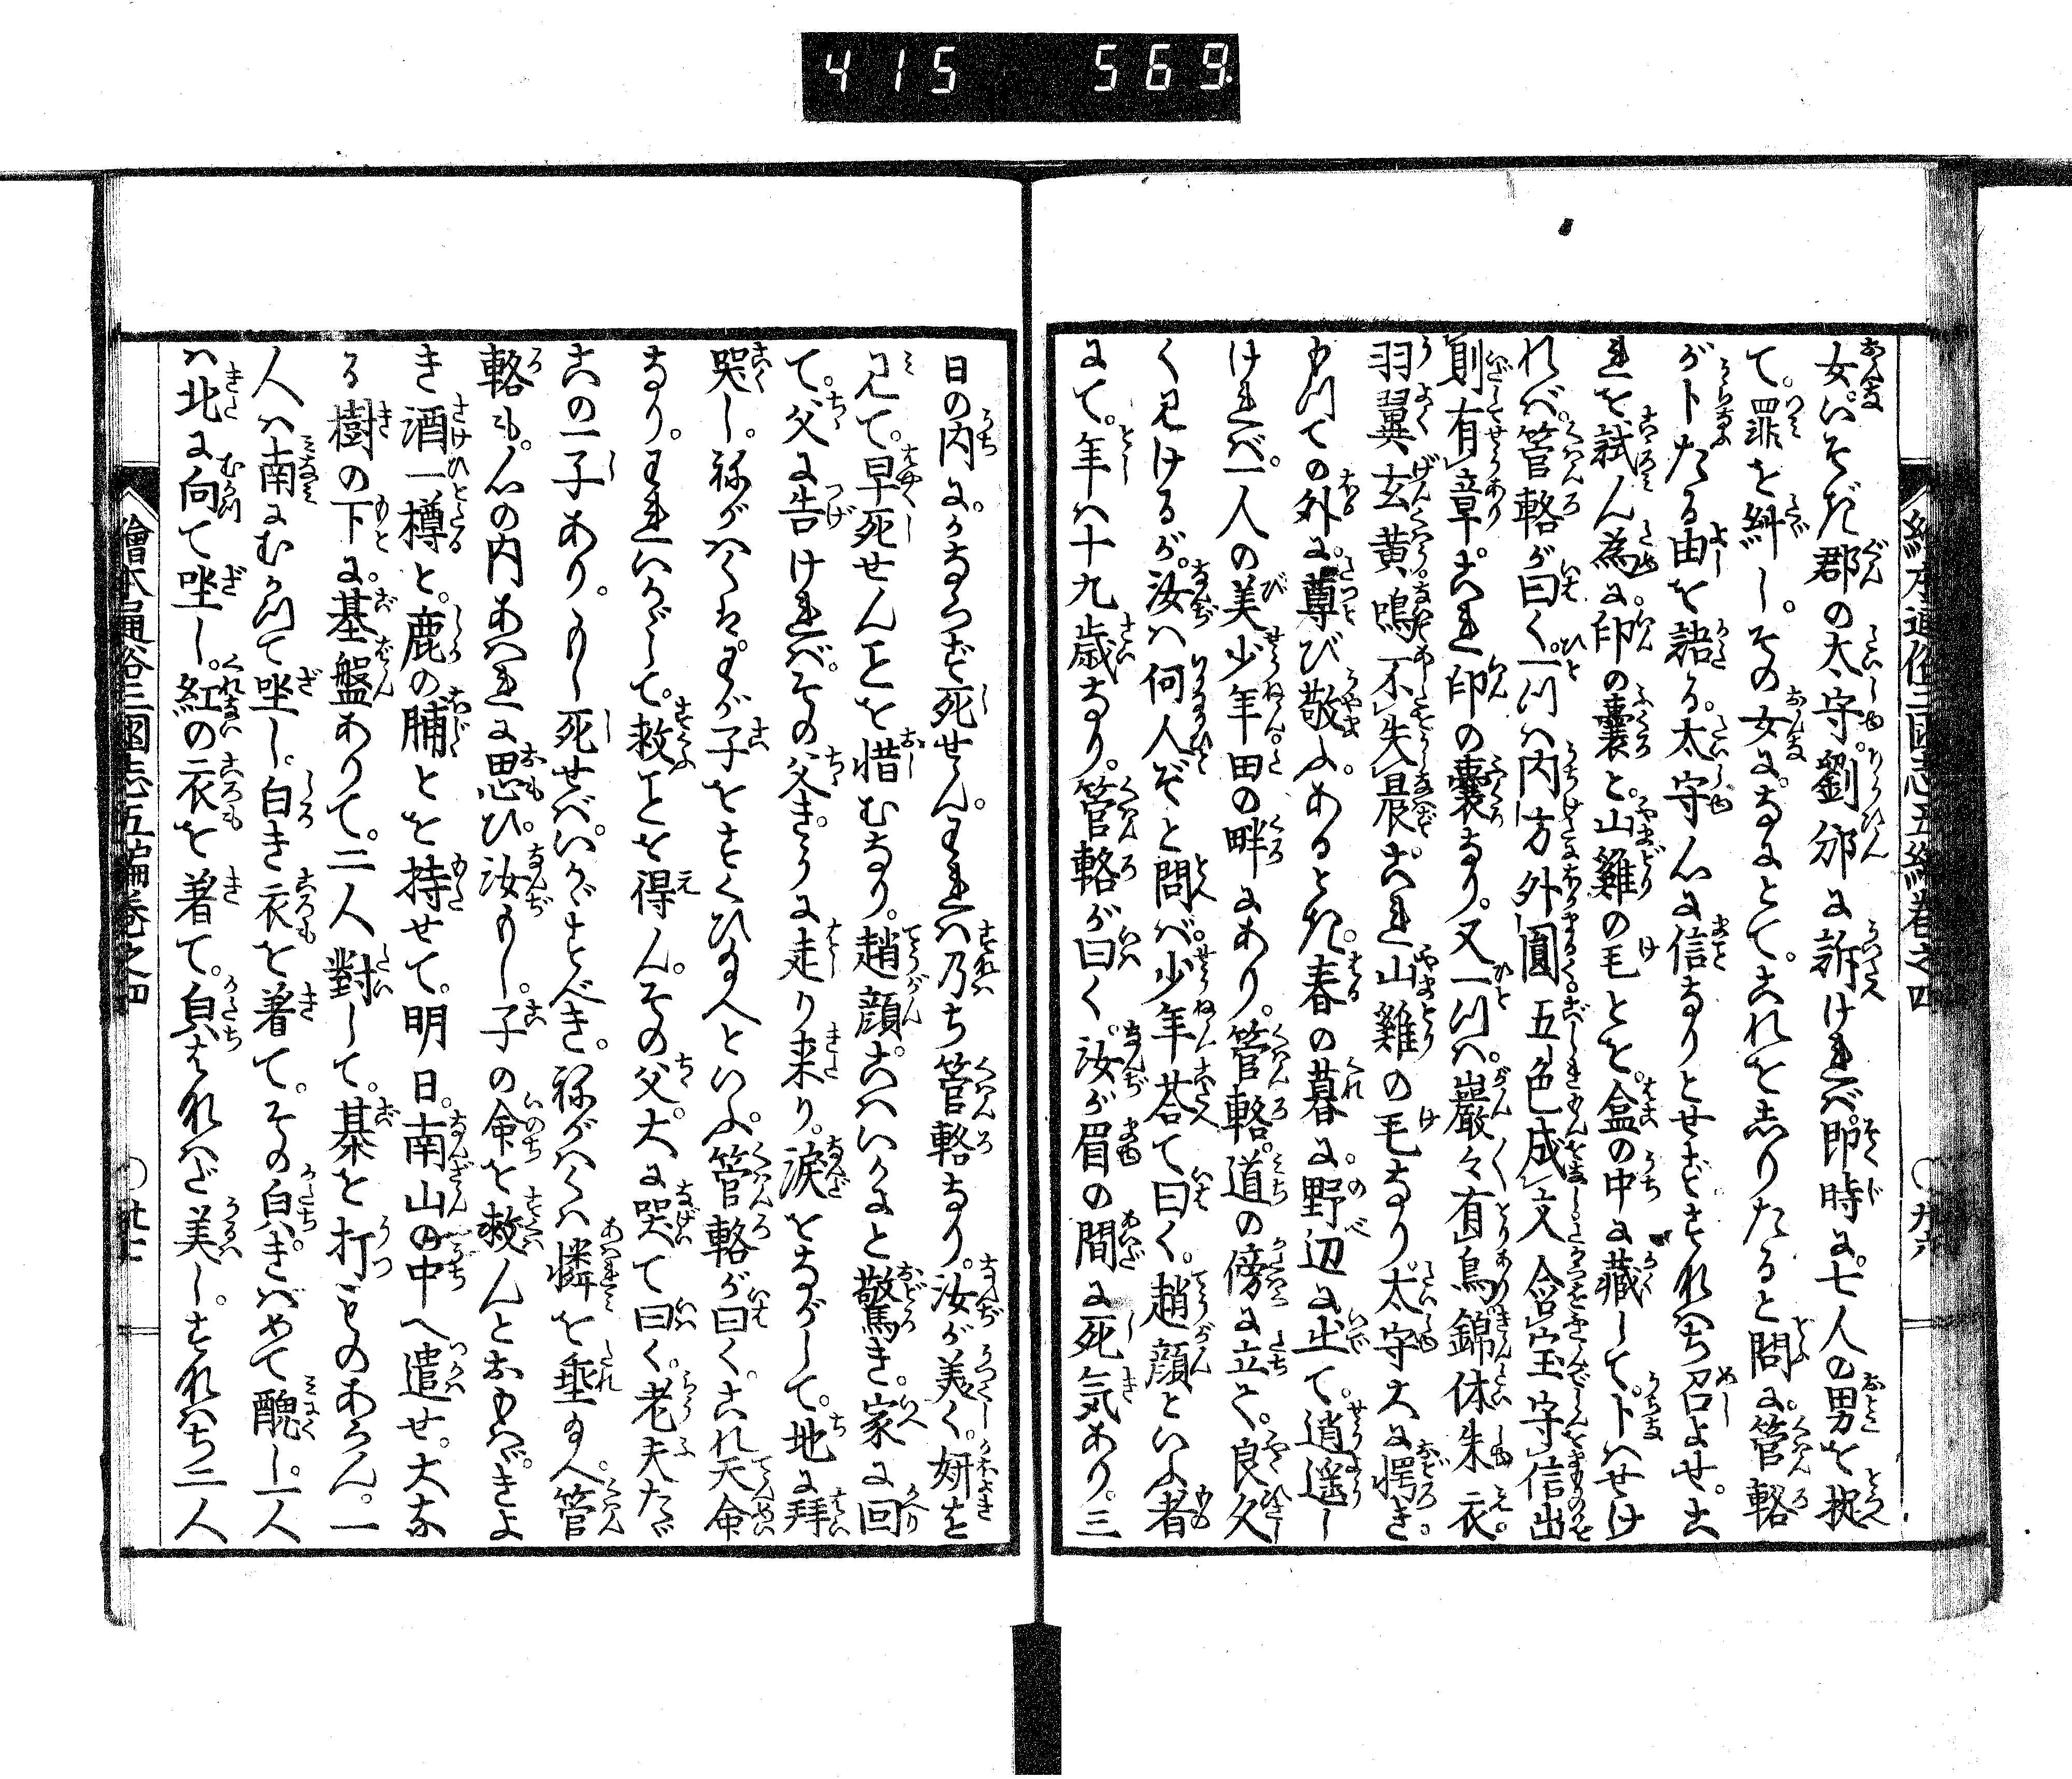 415 569
女いそぎ郡の太守劉邠に訴けれバ即時に七人の男を捉
て罪を糾しその女になにとてこれをしりたると問に管輅
が卜たる由を語る太守心に信なりとせずすなハち召よせこ
れを試ん為に印の嚢と山雞の毛とを盒の中に藏して卜ハせけ
れバ管輅が曰く一ツハ内方外圓五色成文含宝守信出
則有章これ印の嚢なり又一ツハ巖々有鳥錦体朱衣
羽翼玄黄鳴不失晨これ山雞の毛なり太守大に愕き
もつての外に尊び敬ふあるとき春の暮に野辺に出て逍遥し
けれバ一人の美少年田の畔にあり管輅道の傍に立て良久
く見けるが汝ハ何人ぞと問バ少年荅て曰く趙顔といふ者
にて年ハ十九歳なり管輅が曰く汝が眉の間に死気あり三
日の内にかならず死せんわれハ乃ち管輅なり汝が美く妍を
見て早死せんことを惜むなり趙顔こハいかにと驚き家に回
て父に告けれバその父きうに走り来り涙をながして地に拜
哭し祢がハくハわが子をすくひ給へといふ管輅が曰くこれ天命
なりわれいかがして救ことを得んその父大に哭て曰く老夫たゞ
この一子ありもし死せバいかがすべき祢がハくハ憐を垂給へ管
輅も心の内あハれに思ひ汝もし子の命を救んとおもハゞきよ
き酒一樽と鹿の脯とを持せて明日南山の中へ遣せ大な
る樹の下に碁盤ありて二人對して碁を打ものあらん一
人ハ南にむかつて坐し白き衣を着てその皃きハめて醜し一人
ハ北に向て坐し紅の衣を着て皃はなハだ美しすなハち二人
繪本通俗三國志五編卷之四